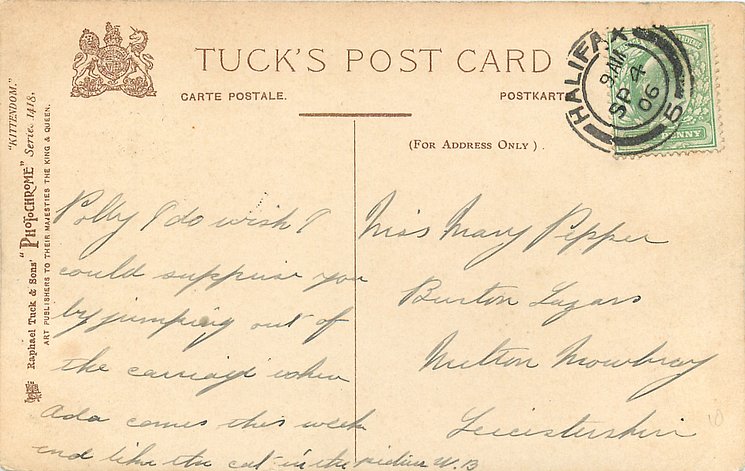 TUCK'S POST CARD
CARTE POSTALE.
POSTKARTE
(FOR ADDRESS ONLY).
HALIFAX
9 AM
SP 4
06
5
PENNY
"KITTENDOM."
Raphael Tuck & Sons' "PHOTOCHROME" Series 1418.
ART PUBLISHERS TO THEIR MAJESTIES THE KING & QUEEN.
Polly I do wish I
could suppise you
by jumping out of
the carriag when
Ada comes this week
end like the cat in the W.B
Miss Mary Pepper
Burton Lazars
Melton Mowbray
Leicistershire
10